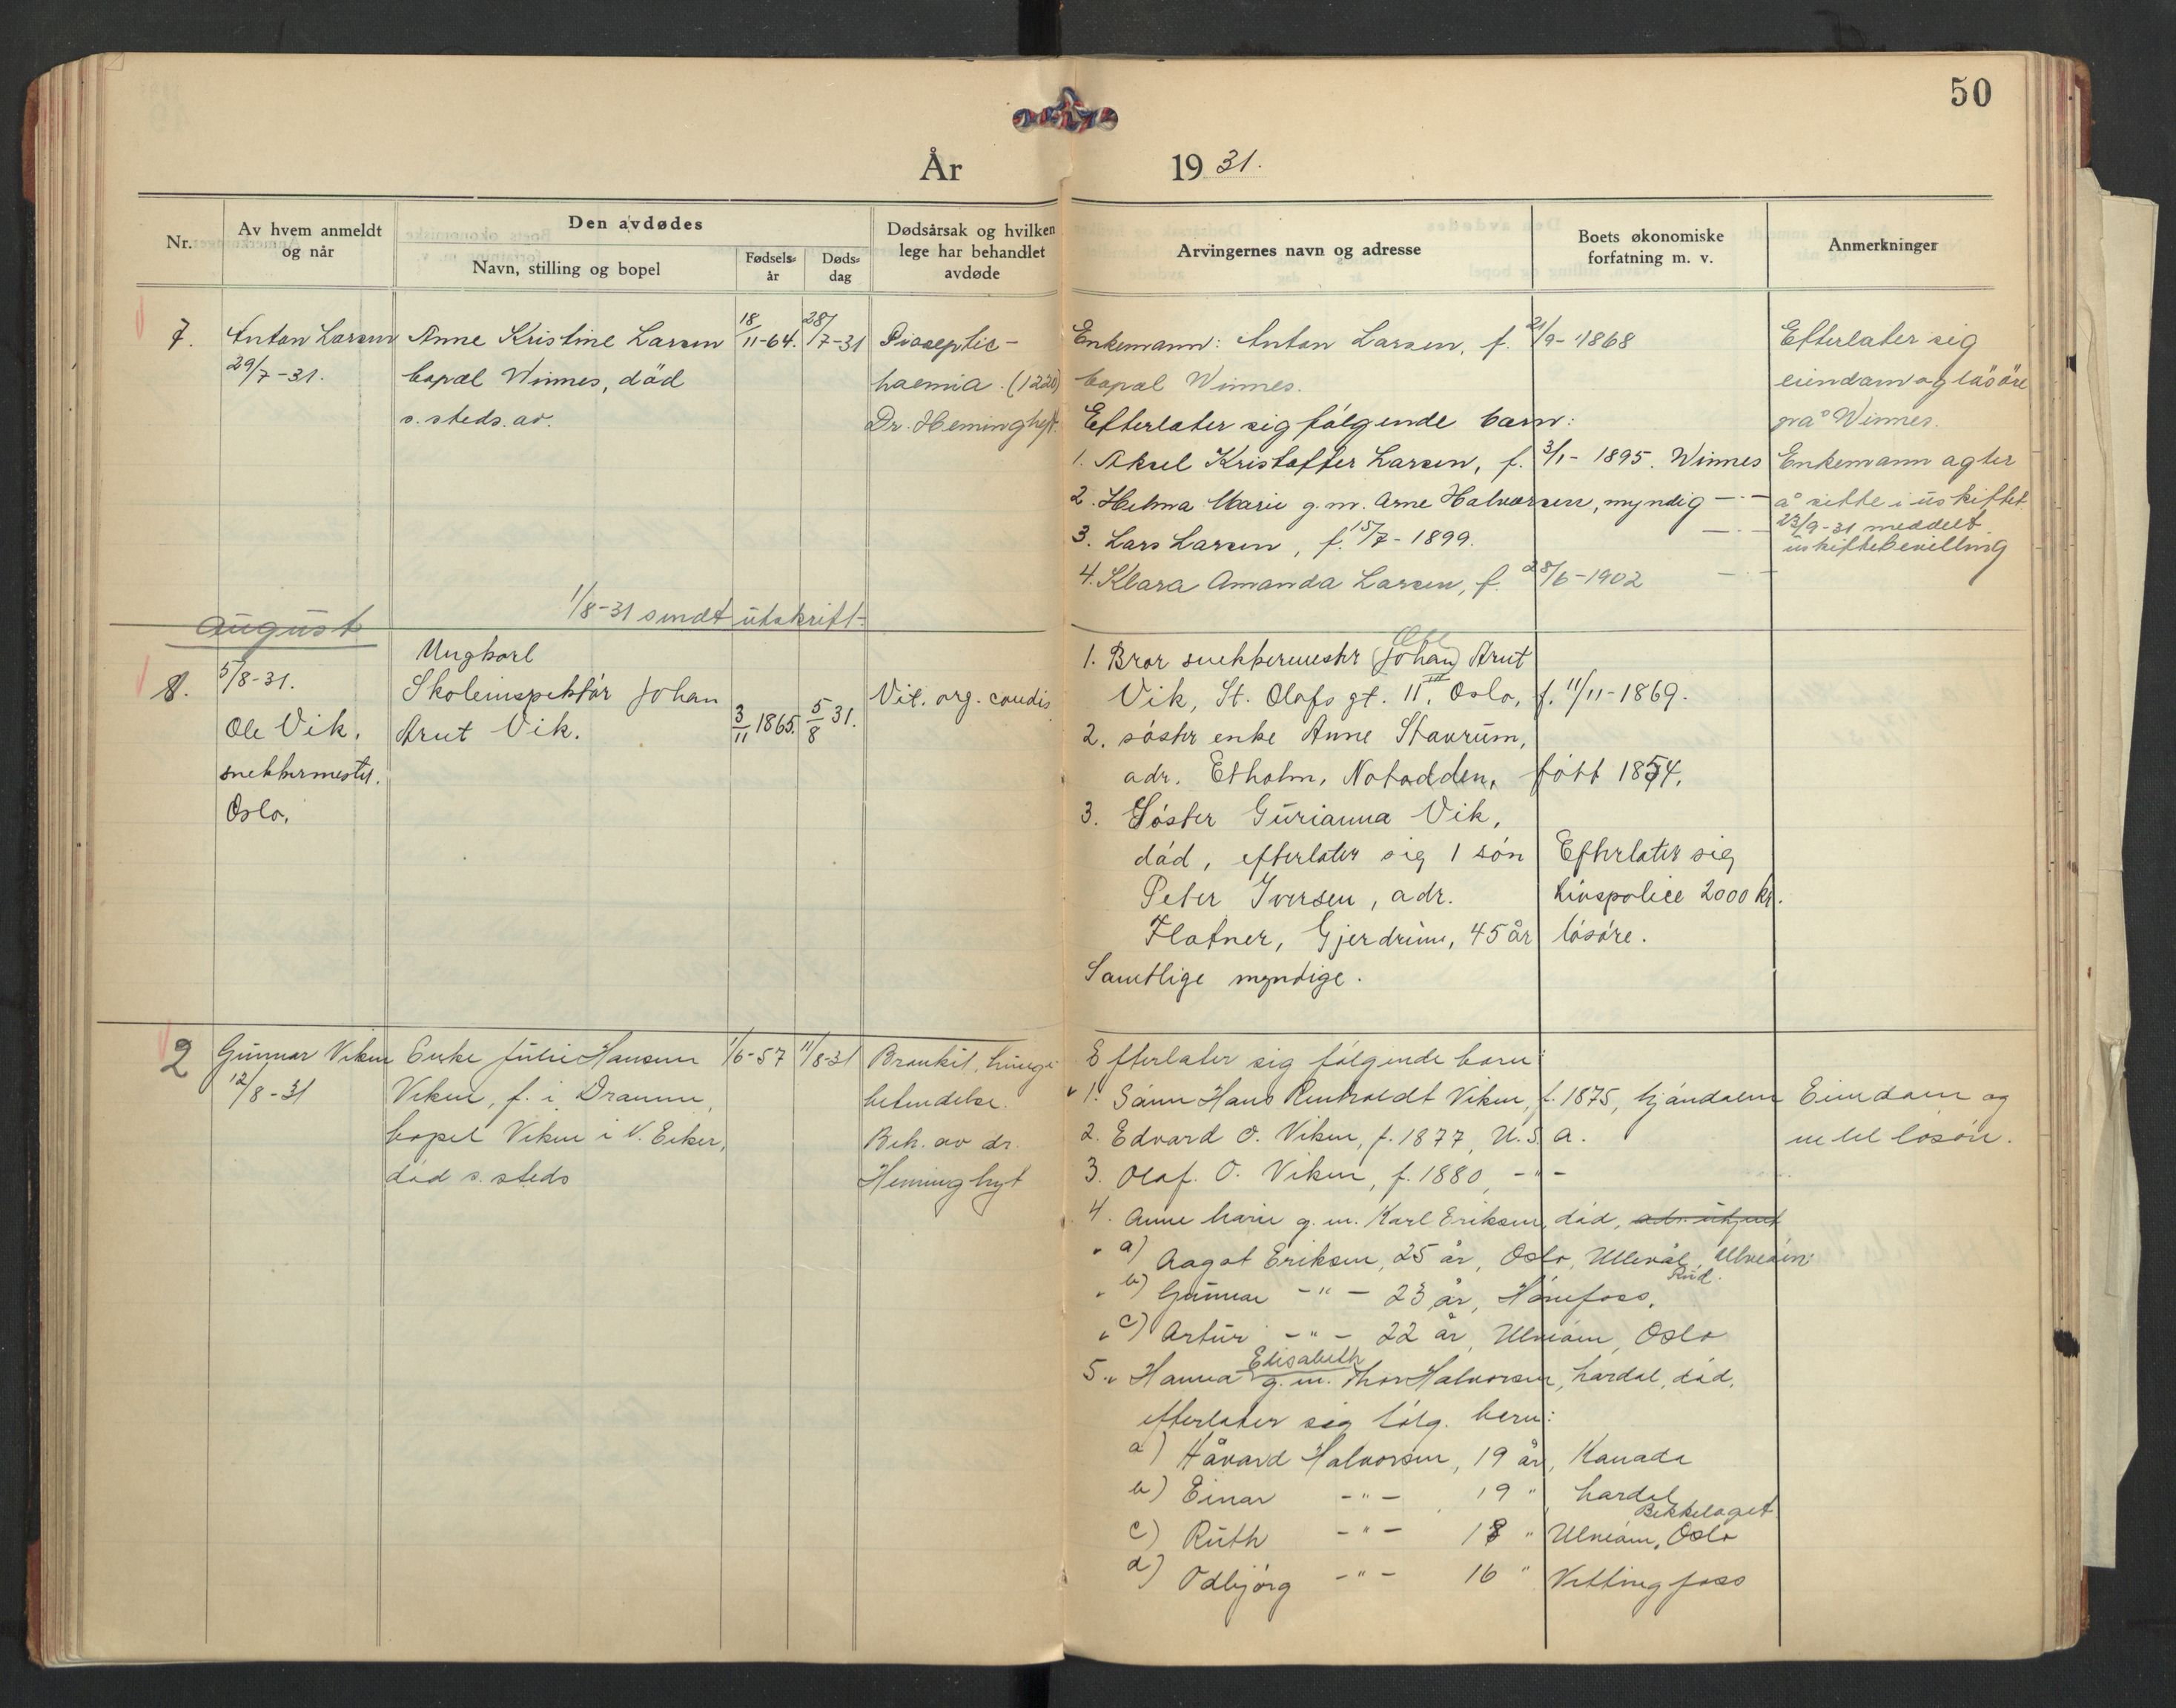 50
År 19 31.
Nr.
Av hvem anmeldt
og når
Den avdødes
Navn, stilling og bopel
Fødsels-
år
Døds-
dag
Dødsårsak og hvilken
lege har behandlet
avdøde
Arvingernes navn og adresse
Boets økonomiske
forfatning m. v.
Anmerkninger
7.
Anton Larsen
29/7-31.
Anne Kristine Larsen
bopæl Winnes, död
s. steds. av.
18/11-64.
28/7-31
haemia. (1220)
Dr. Heminghyt.
Enkemann: Anton Larsen, f. 21/9-1868
bopæl Winnes.
Efterlater sig følgende barn:
1. Aksel Kristoffer Larsen, f. 3/1-1895. Winnes
2. Helma Marie g.m. Arne Halvorsen, myndig -"-
3. Lars Larsen, f. 15/7-1899. -"-
4. Klara Amanda Larsen, f. 28/6-1902 -"-
Efterlater sig
eiendom og løsøre
på Winnes.
Enkemann agter
å sitte i uskiftet
23/9-31 meddelt
uskiftebevilling
1/8-31 sendt utskrift-
August
8.
5/8-31.
Ole Vik,
snekkermester.
Oslo.
Ungkarl
Skoleinspektør Johan
Arut Vik.
3/11 1865.
5/8 31.
Vit. org. cordis
1. Bror snekkermester (Johan) Ole Arut
Vik, St. Olafs gt. 11 III, Oslo, f. 11/11-1869.
2. søster enke Anne Stavrum,
adr. Etholm, Notodden, født 1854.
3. Søster Gurianna Vik,
død, efterlater sig 1 søn
Peter Iversen, adr.
Flatner, Gjerdrum, 45 år
Samtlige myndige.
Efterlater sig
livspolice 2000 kr.
løsøre.
2
Gunnar Viken
12/8-31
Enke Julie Hansen
Viken, f. i Drammen,
bopel Viken i N. Eiker,
død s. steds
1/6-57
11/8-31
Bronkit, lunge
betendelse.
Beh. av dr.
Heminghyt
Efterlater sig følgende barn:
1. Sønn Hans Reinholdt Viken, f. 1875, Mjøndalen
2. Edvard O. Viken, f. 1877, U.S.A.
3. Olaf. O. Viken, f. 1880, -"-
4. Anne Marie g.m. Karl Eriksen, død,
a) Aagot Eriksen, 25 år, Oslo, Ullevål
b) Gunnar -"- 23 år, Hønefoss,
c) Artur -"- 22 år, Ulvøen, Oslo
5. Hanna Elisabeth g.m. Thor Halvorsen, Lardal, død,
efterlater sig følg. barn:
a) Håvard Halvorsen, 19 år, Kanada
b) Einar -"- 19 " Lardal
c) Ruth -"- 18 " Ulvøen, Bekkelaget Oslo
d) Odbjørg -"- 16 " Vittingfoss
Eiendom og
litt løsøre.